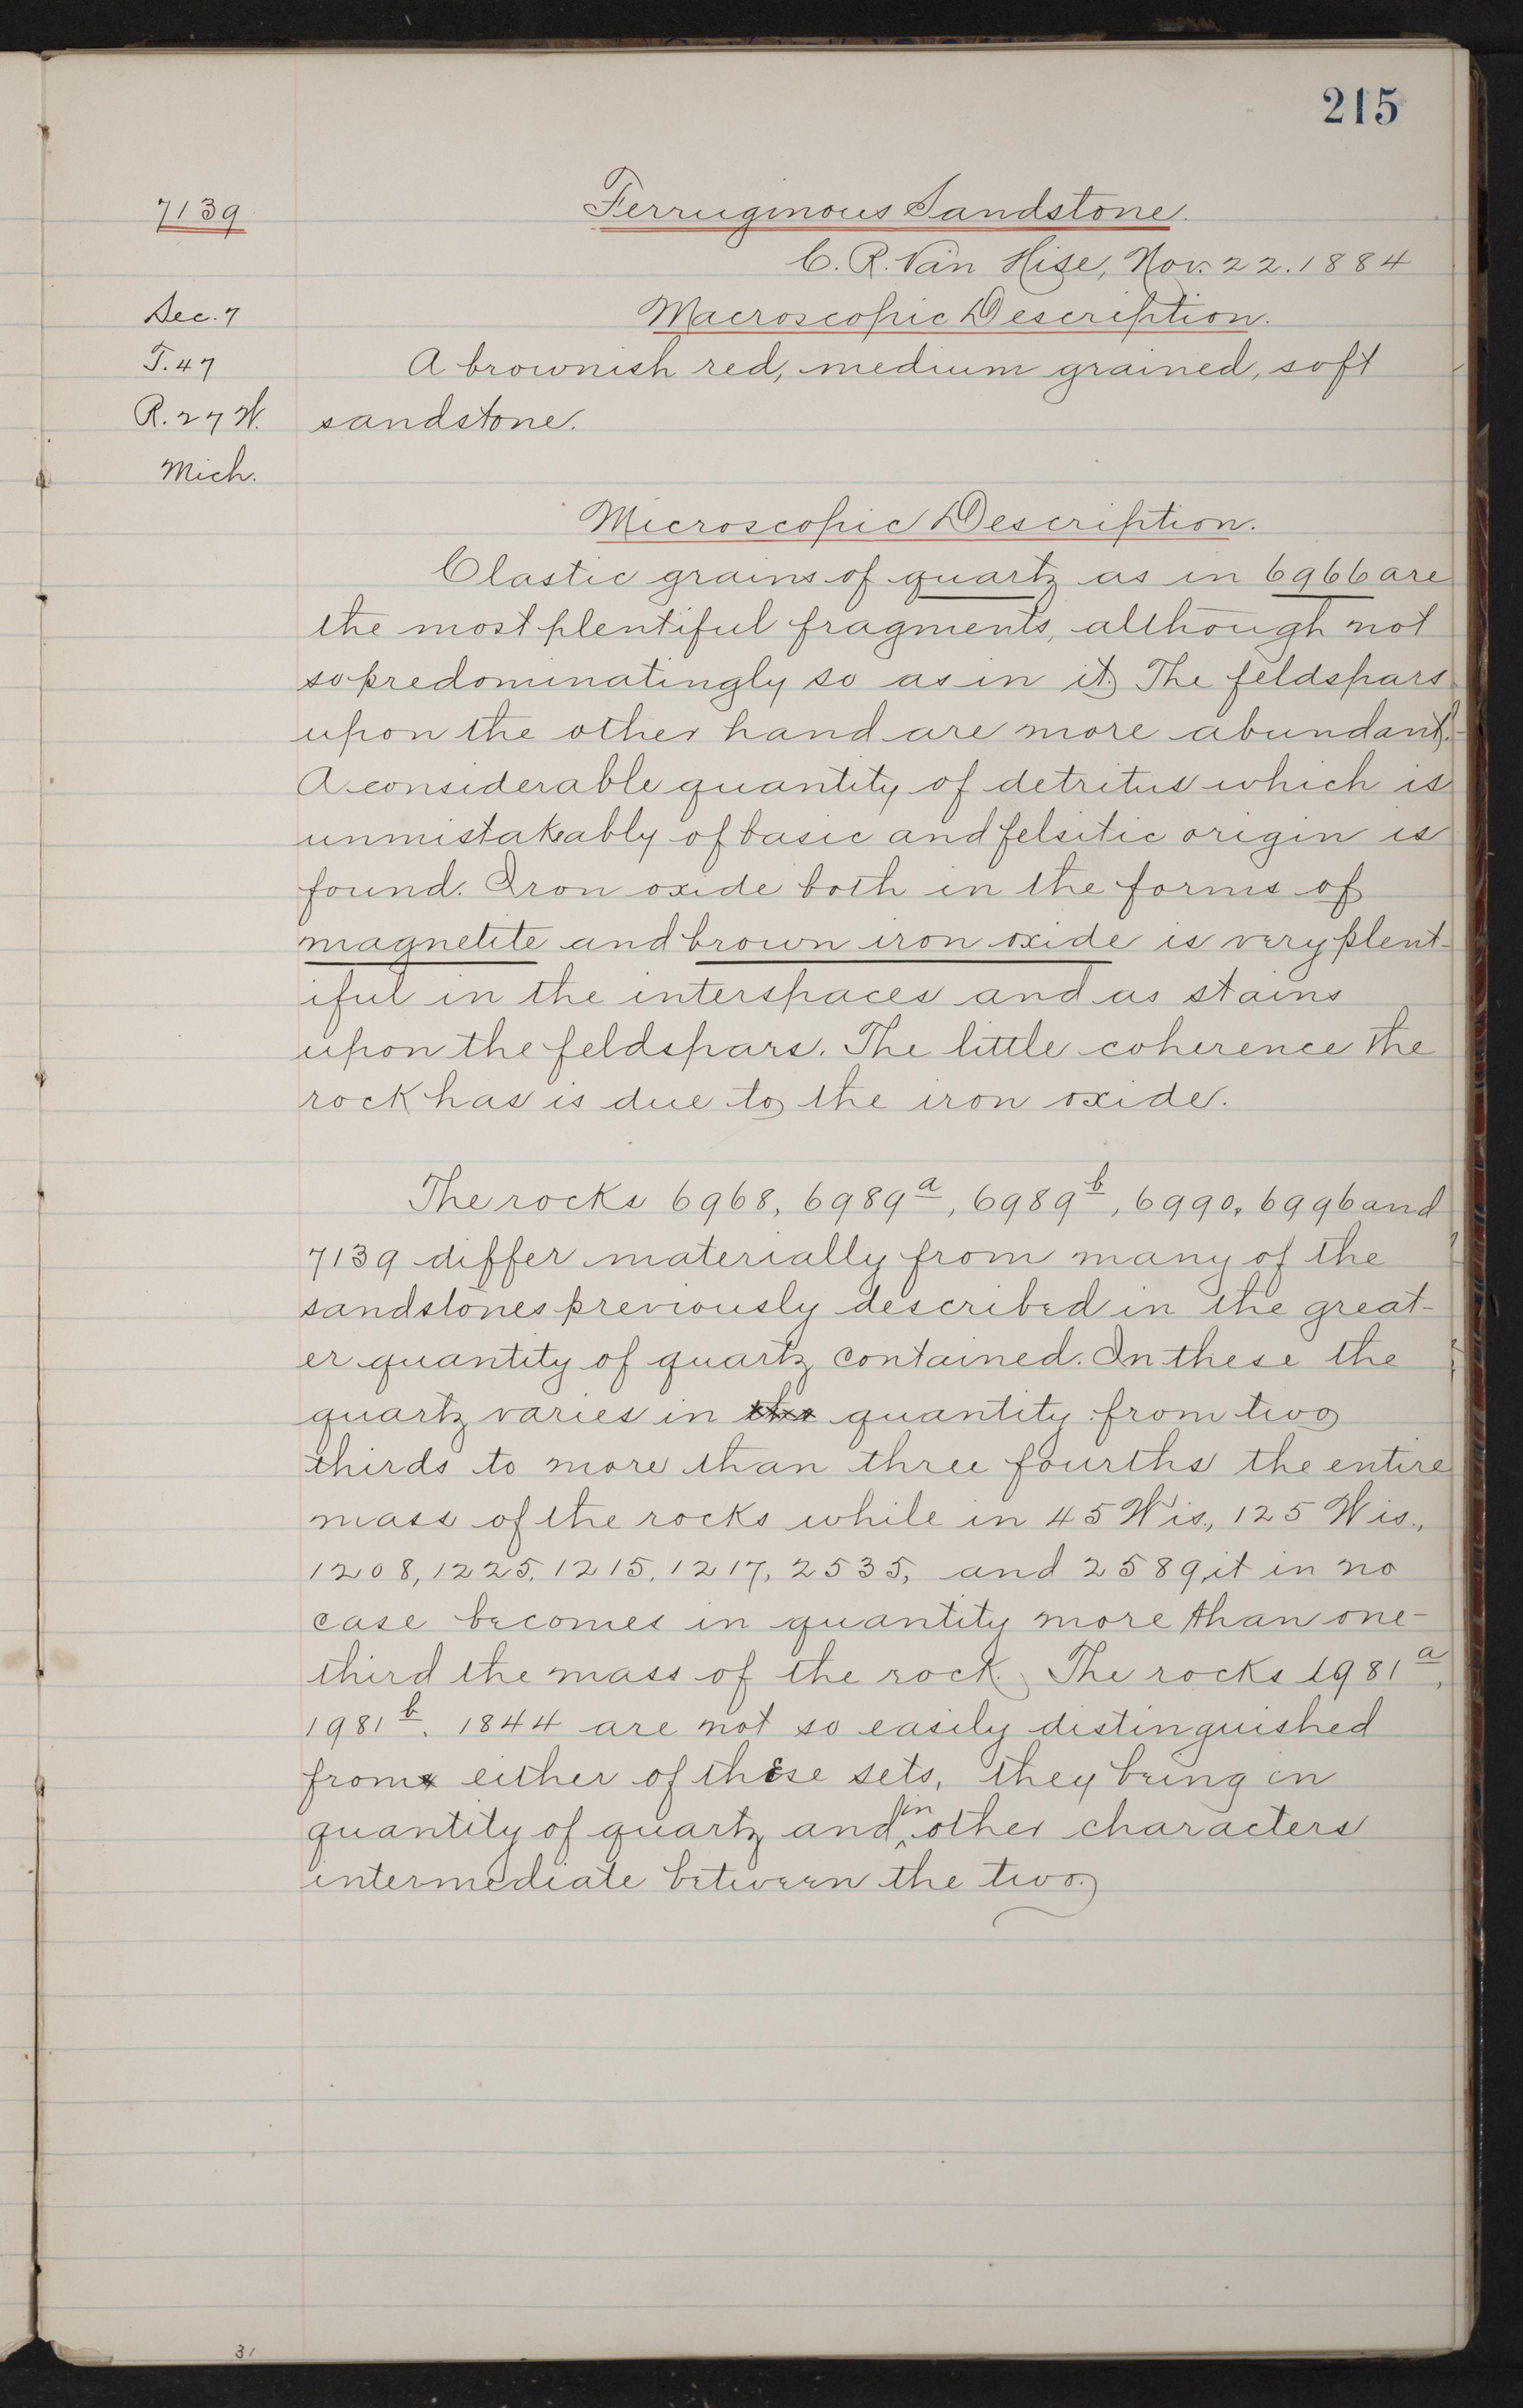 215
7139
Ferruginous Sandstone.
C. R. Van Hise, Nov. 22. 1884
Sec. 7
Macroscopic Description.
T. 47
A brownish red, medium grained, soft
R. 27 W.
sandstone.
Mich.
Microscopic Description.
Clastic grains of quartz as in 6966 are
the most plentiful fragments, although not
so predominatingly so as in it. The feldspars
upon the other hand are more abundant.
A considerable quantity of detritus which is
unmistakably of basic and felsitic origin is
found. Iron oxide both in the forms of
magnetite and brown iron oxide is very plent-
iful in the interspaces and as stains
upon the feldspars. The little coherence the
rock has is due to the iron oxide.
The rocks 6968, 6989a, 6989b, 6990, 6996 and
7139 differ materially from many of the
sandstones previously described in the great-
er quantity of quartz contained. In these the
quartz varies in the quantity from two
thirds to more than three fourths the entire
mass of the rocks while in 45 Wis., 125 Wis.,
1208, 1225, 1215, 1217, 2535, and 2589 it in no
case becomes in quantity more than one-
third the mass of the rock. The rocks 1981a,
1981b, 1844 are not so easily distinguished
from either of these sets, they being in
quantity of quartz and in other characters
intermediate between the two.
31